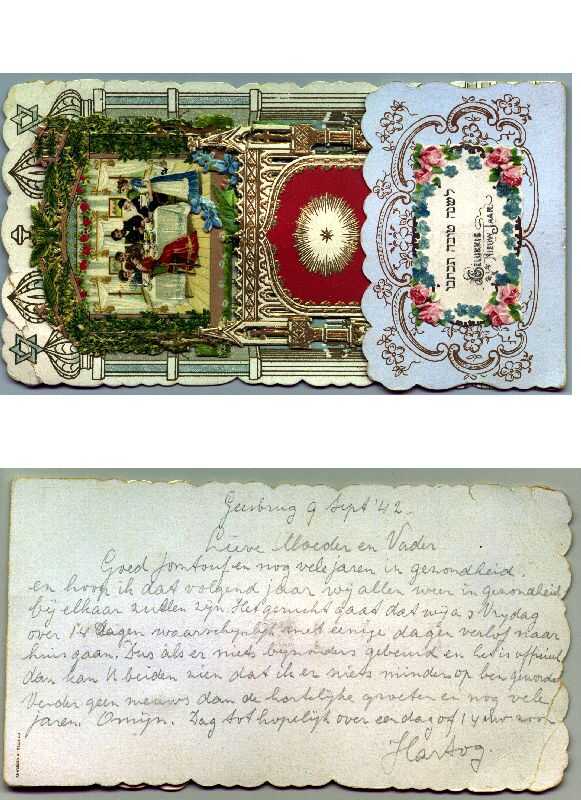 לשנה טובה תכתבו
GELUKKIG
NIEUWJAAR
Geesbrug 9 Sept '42.
Lieve Moeder en Vader
Goed Jomtouf en nog vele jaren in gezondheid.
en hoop ik dat volgend jaar wij allen weer in gezondheid
bij elkaar zullen zijn. Het gerucht gaat dat wij a s Vrijdag
over 14 dagen waarschijnlijk met eenige dagen verlof naar
huis gaan. Dus als er niets bijzonders gebeurd en het is officieel
dan kan U beiden zien dat ik er niets minder op ben geworden
Verder geen nieuws dan de hartelijke groeten en nog vele
jaren. Omijn. Dag tot hopelijk over een dag of 14 uw zoon
Hartog.